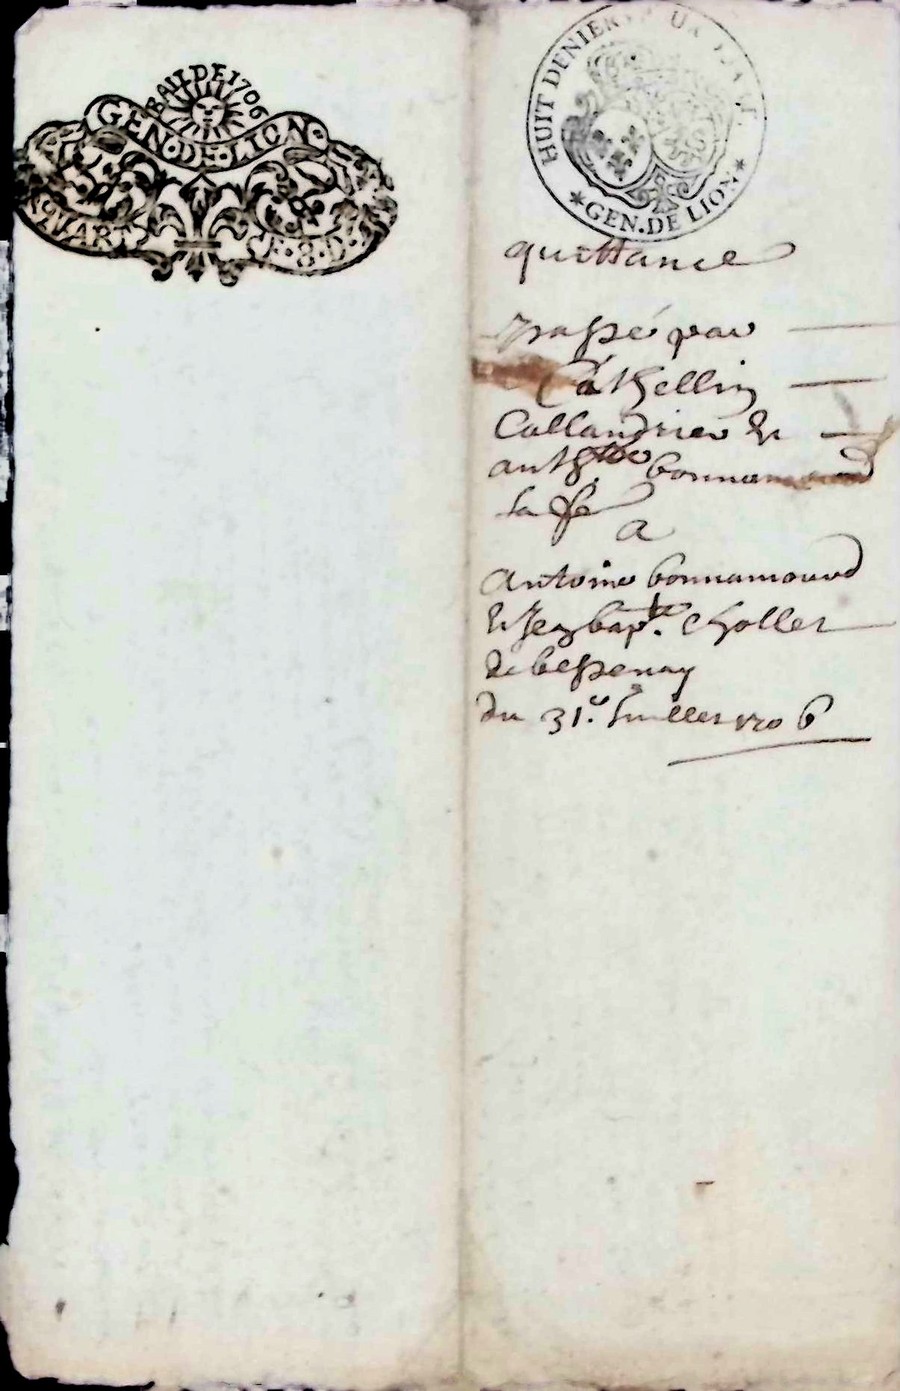 BAIL DE 1706
GEN·DE·LION
QUART F·8·D
HUIT DENIERS
GEN. DE LION
quittance
passé par
Cathellin
Callandrier &
anth.tte bonnamourd
sa fe
a
Antoine bonnamourd
& Jean bap.te Chollet
de bessenay
du 31.e Juillet 1706